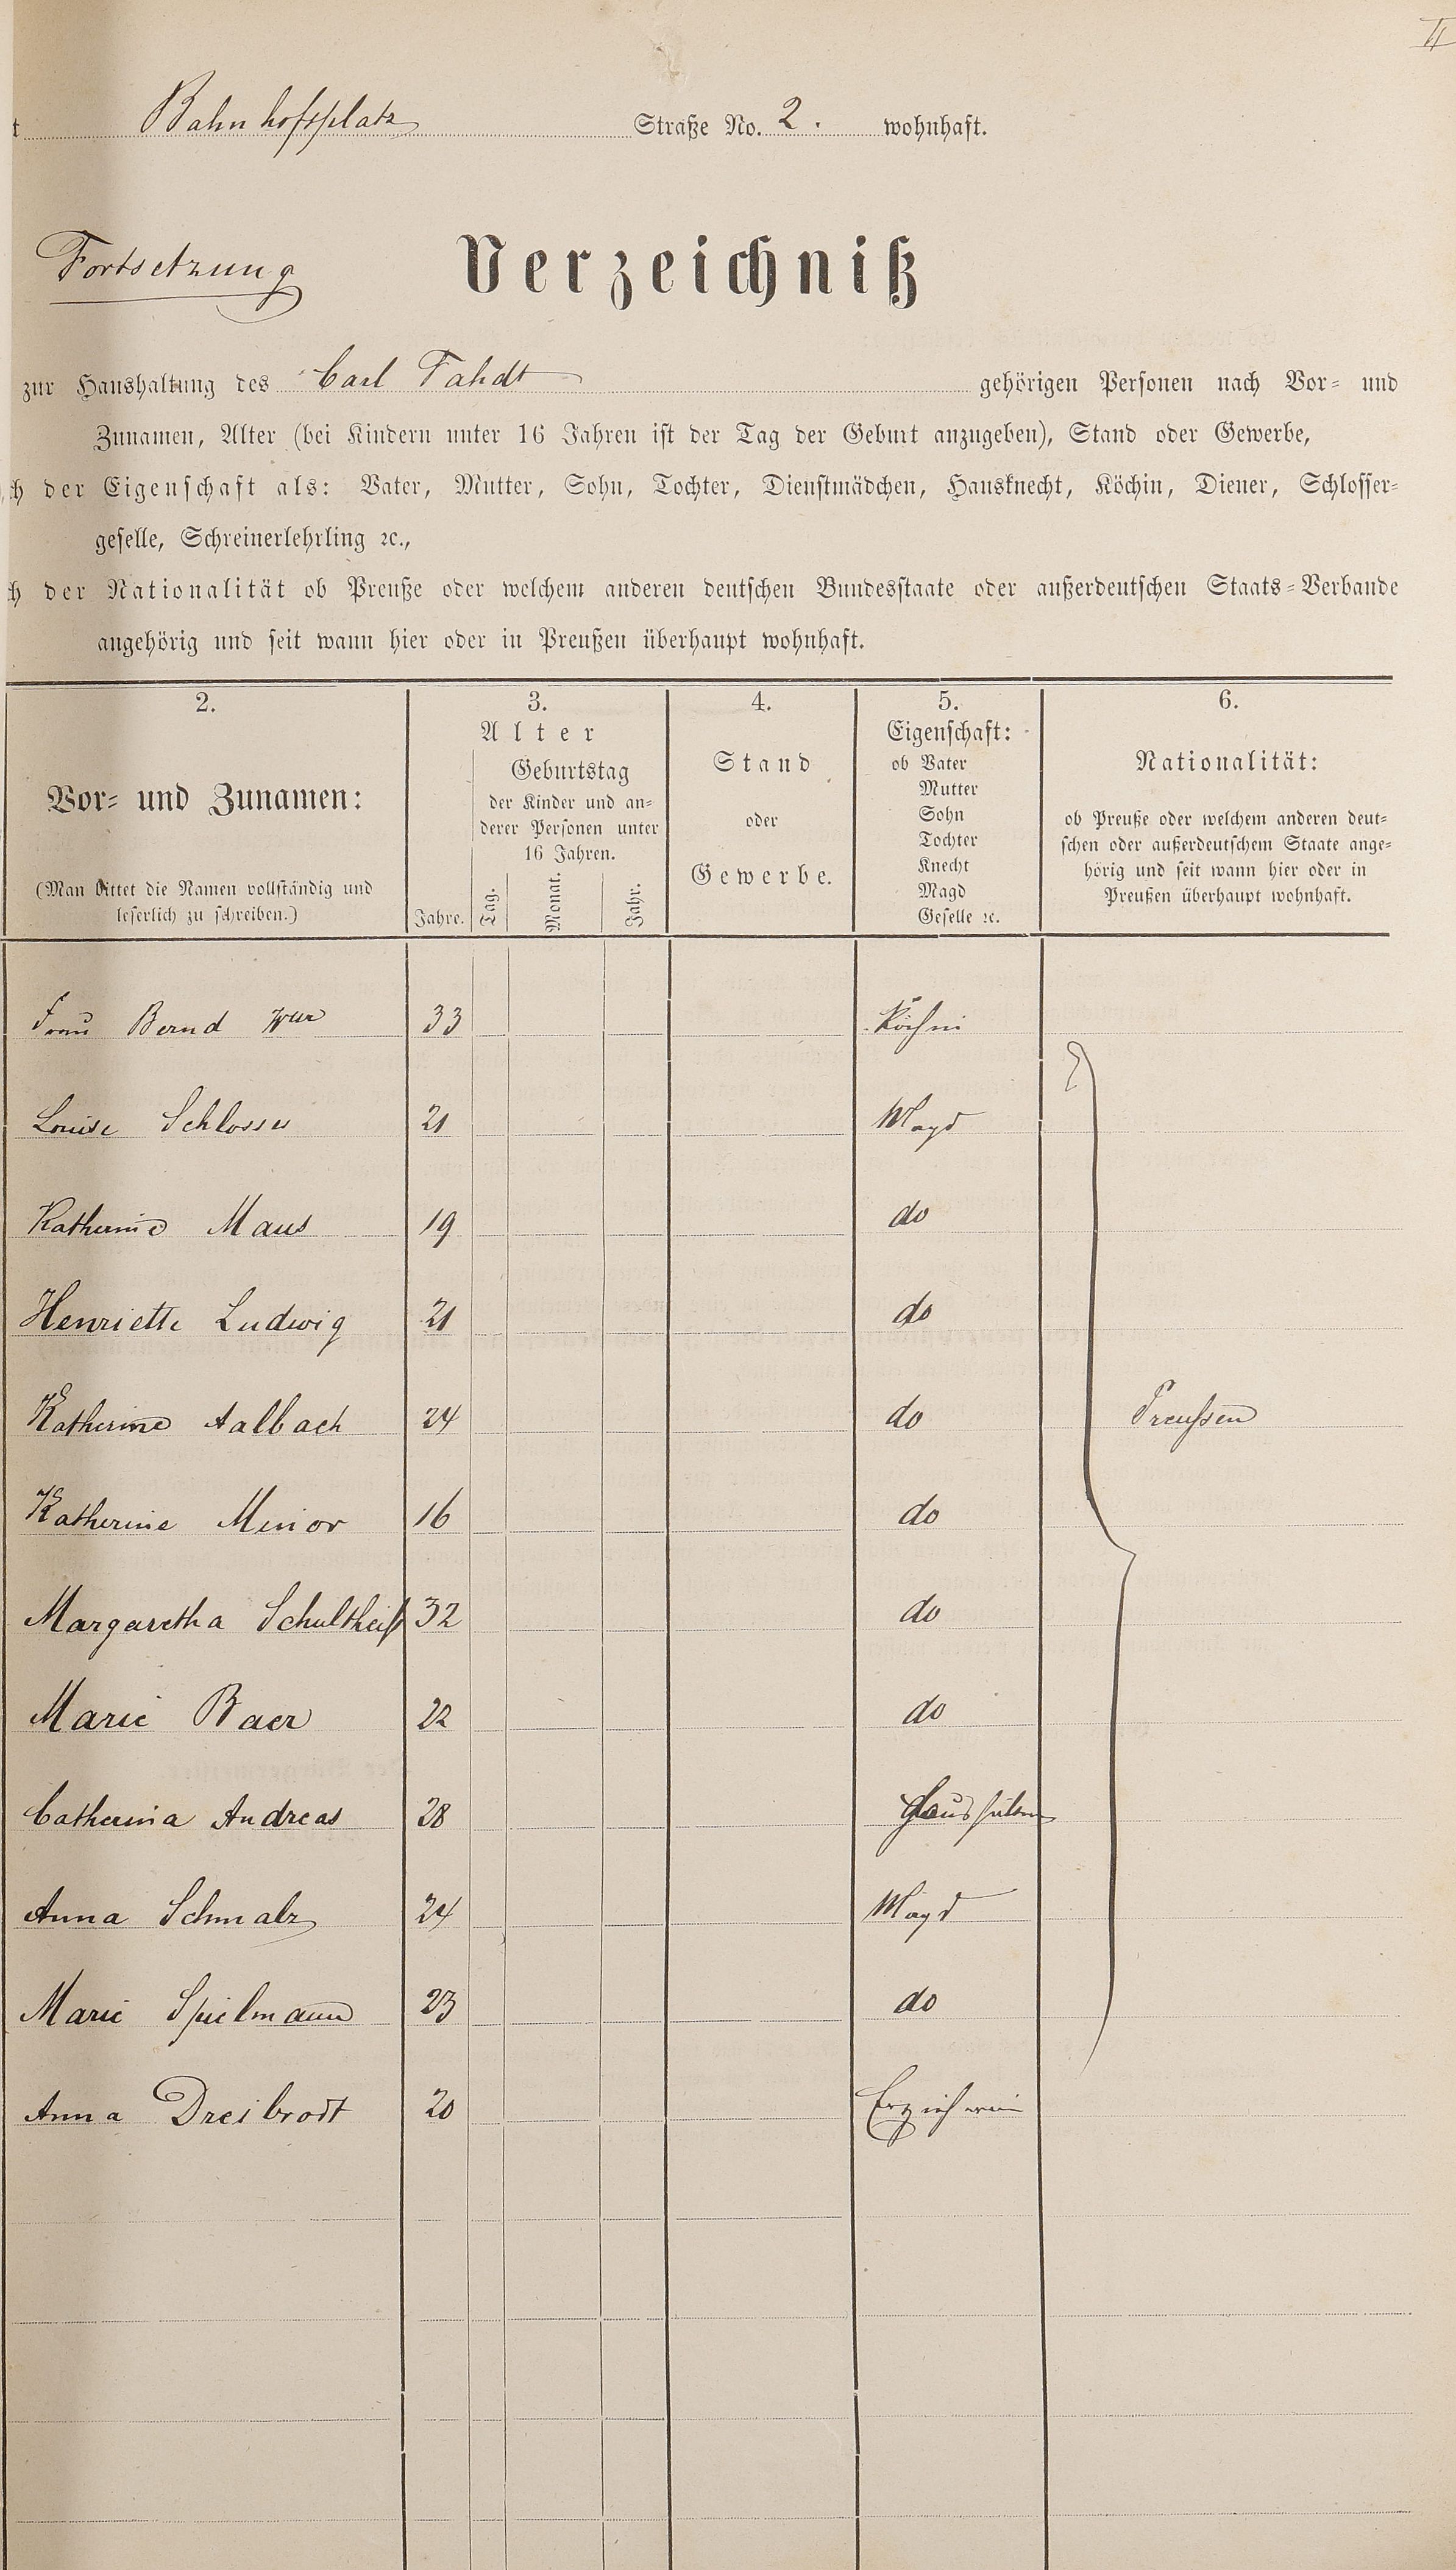 Bahnhofsplatz Straße No. 2. wohnhaft.
Fortsetzung Verzeichniß
zur Haushaltung des Carl Fahdt gehörigen Personen nach Vor= und
Zunamen, Alter (bei Kindern unter 16 Jahren ist der Tag der Geburt anzugeben), Stand oder Gewerbe,
der Eigenschaft als: Vater, Mutter, Sohn, Tochter, Dienstmädchen, Hausknecht, Köchin, Diener, Schlosser=
geselle, Schreinerlehrling ꝛc.,
der Nationalität ob Preuße oder welchem anderen deutschen Bundesstaate oder außerdeutschen Staats=Verbande
angehörig und seit wann hier oder in Preußen überhaupt wohnhaft.
2. 3. 4. 5. 6.
Vor= und Zunamen:
(Man bittet die Namen vollständig und
leserlich zu schreiben.)
Alter
Geburtstag
der Kinder und an=
derer Personen unter
16 Jahren.
Jahre. Tag. Monat. Jahr.
Stand
oder
Gewerbe.
Eigenschaft:
ob Vater
Mutter
Sohn
Tochter
Knecht
Magd
Geselle ꝛc.
Nationalität:
ob Preuße oder welchem anderen deut=
schen oder außerdeutschem Staate ange=
hörig und seit wann hier oder in
Preußen überhaupt wohnhaft.
Frau Bernd Wwe 33 Köchin
Louise Schlosser 21 Magd
Katherine Maus 19 do
Henriette Ludwig 21 do
Katherine Aalbach 24 do Preußen
Katherine Minor 16 do
Margaretha Schultheiß 32 do
Marie Baer 22 do
Catherina Andreas 28
Anna Schmalz 24 Magd
Marie Spielmann 23 do
Anna Dreibrodt 20 Erzieherin